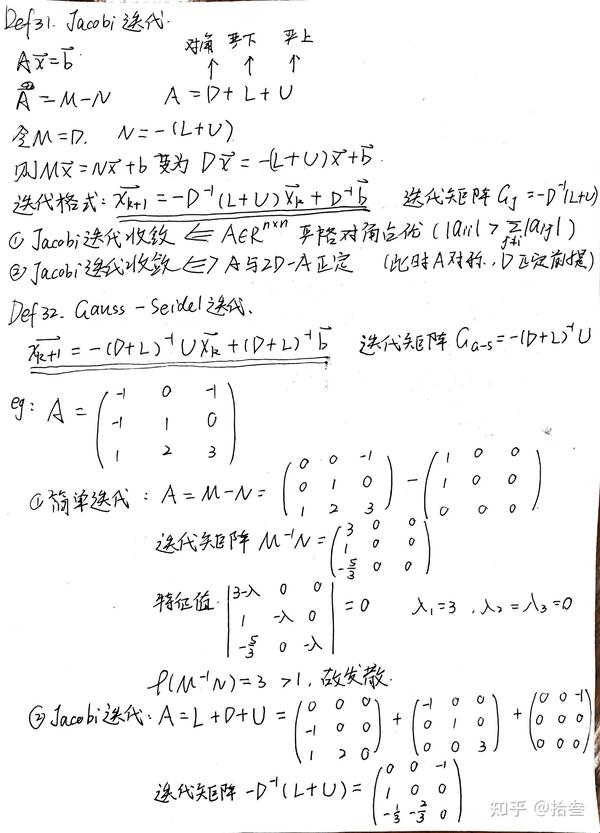 Def31. Jacobi 迭代.
对角 严下 严上
↑ ↑ ↑
Ax⃗=b⃗
A=M-N A=D+L+U
令M=D. N=-(L+U)
则Mx⃗=Nx⃗+b 变为 Dx⃗=-(L+U)x⃗+b⃗.
迭代格式: x⃗ₖ₊₁=-D⁻¹(L+U)x⃗ₖ+D⁻¹b⃗ 迭代矩阵 G_J=-D⁻¹(L+U)
① Jacobi迭代收敛 ⇐ A∈Rⁿˣⁿ 严格对角占优 (|aᵢᵢ|>Σ_{j≠i}|aᵢⱼ|)
② Jacobi迭代收敛 ⇔ A与2D-A正定 (此时A对称, D正定前提)
Def32. Gauss-Seidel 迭代.
x⃗ₖ₊₁=-(D+L)⁻¹Ux⃗ₖ+(D+L)⁻¹b⃗ 迭代矩阵 G_{G-S}=-(D+L)⁻¹U
eg: A = (-1 0 -1; -1 1 0; 1 2 3)
①简单迭代: A=M-N= (0 0 -1; 0 1 0; 1 2 3) - (1 0 0; 1 0 0; 0 0 0)
迭代矩阵 M⁻¹N= (3 0 0; 1 0 0; -5/3 0 0)
特征值. |3-λ 0 0; 1 -λ 0; -5/3 0 -λ| =0 λ₁=3, λ₂=λ₃=0
ρ(M⁻¹N)=3 >1, 故发散.
② Jacobi迭代: A=L+D+U= (0 0 0; -1 0 0; 1 2 0) + (-1 0 0; 0 1 0; 0 0 3) + (0 0 -1; 0 0 0; 0 0 0)
迭代矩阵 -D⁻¹(L+U)= (0 0 -1; 1 0 0; -1/3 -2/3 0)
知乎 @拾叁